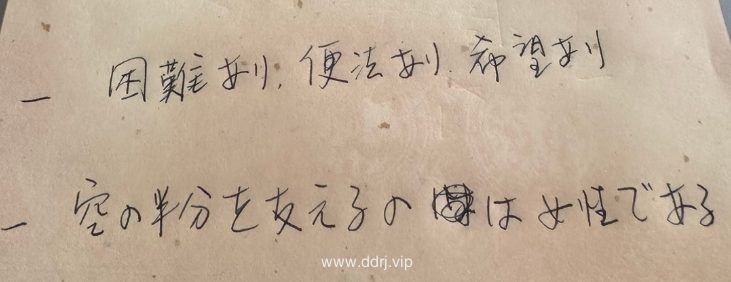 一 困難あり、便法あり、希望あり
一 空の半分を支える のは女性である
www.ddrj.vip